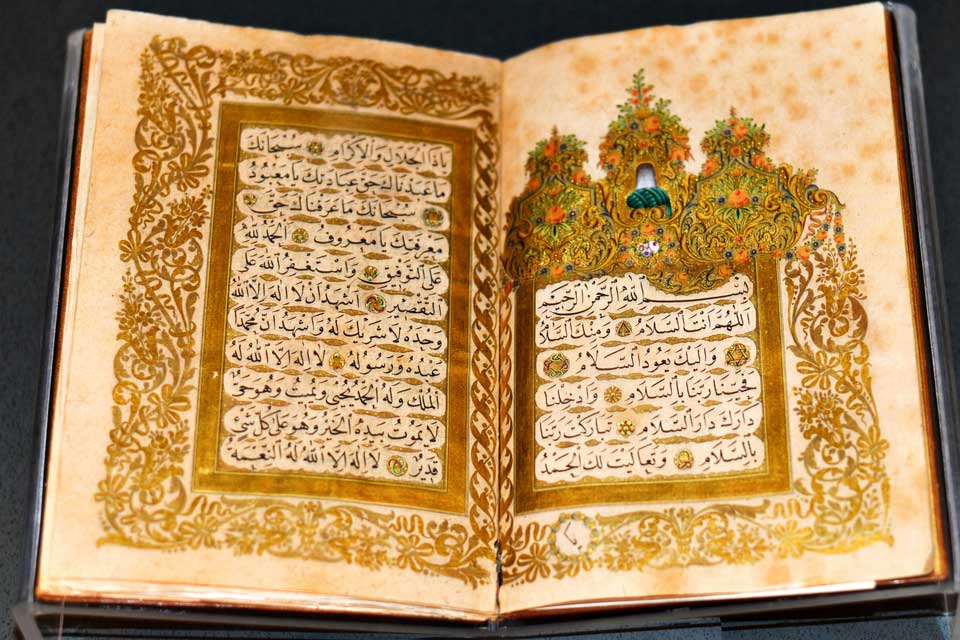 بسم الله الرحمن الرحيم
اللهم انت السلام ومنك السلام
واليك يعود السلام
فحينا ربنا بالسلام وادخلنا
دارك دار السلام تباركت ربنا
بالسلام وتعاليت لك الحمد
ياذا الجلال والاكرام سبحانك
ما عبدناك حق عبادتك يا معبود
سبحانك ما عرفناك حق
معرفتك يا معروف الحمد لله
على التوفيق واستغفر الله على
التقصير اشهد ان لا اله الا الله
وحده لا شريك له واشهد ان محمدا
عبده ورسوله لا اله الا الله له
الملك وله الحمد يحيى ويميت وهو حى
لا يموت بيده الخير وهو على كل شئ
قدير لا اله الا الله له النعمة